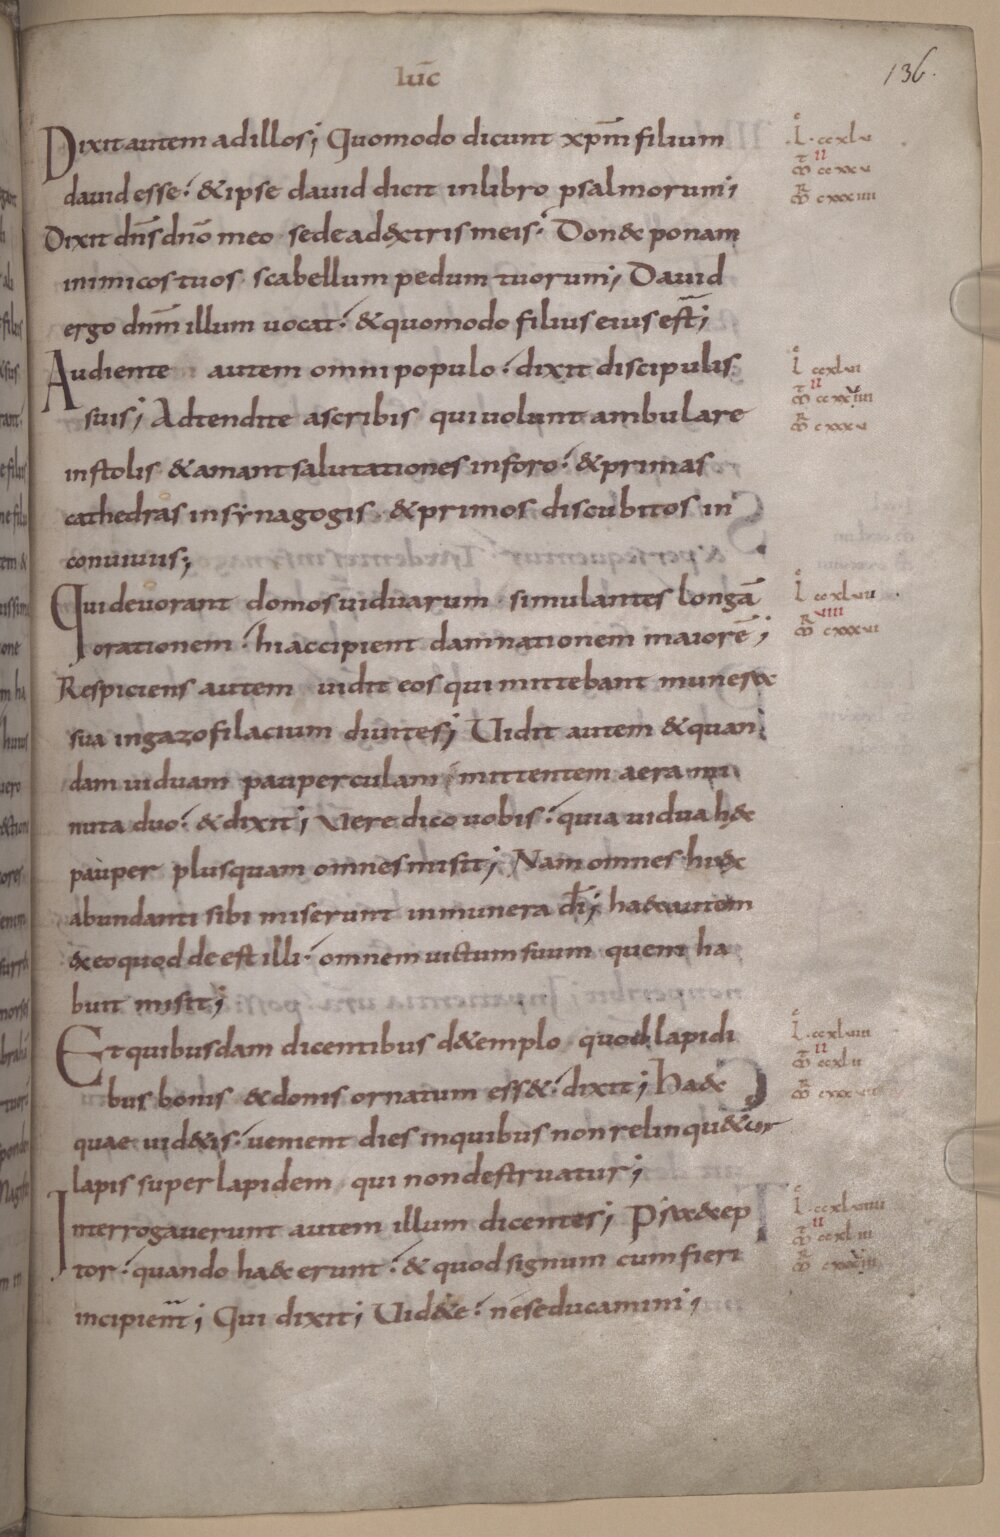 lūc
136.
Dixit autem ad illos; Quomodo dicunt xp̄m filium
dauid esse. & ipse dauid dicit in libro psalmorum;
Dixit dn̄s dn̄o meo sede ad dextris meis. Donec ponam
inimicos tuos scabellum pedum tuorum; Dauid
ergo dn̄m illum uocat. & quomodo filius eius est;
Audiente autem omni populo. dixit discipulis
suis; Adtendite a scribis qui uolunt ambulare
in stolis & amant salutationes in foro. & primas
cathedras in synagogis. & primos discubitos in
conuiuiis;
Qui deuorant domos uiduarum. simulantes longā
orationem. hi accipient damnationem maiorē;
Respiciens autem uidit eos qui mittebant munera
sua in gazofilacium diuites; Uidit autem & quan
dam uiduam pauperculam mittentem aera mi
nuta duo. & dixit; Uere dico uobis. quia uidua h&c
pauper plus quam omnes misit; Nam omnes hi ex
abundanti sibi miserunt in munera dī; haec autem
ex eo quod deest illi. omnem uictum suum quem ha
buit misit;
Et quibusdam dicentibus de templo. quod lapidi
bus bonis & donis ornatum ess&. dixit; Haec
quae uid&is. uenient dies in quibus non relinqu&ur
lapis super lapidem qui non destruatur;
Interrogauerunt autem illum dicentes; Praecep
tor. quando haec erunt. & quod signum cum fieri
incipient; Qui dixit; Uid&e. ne seducamini;